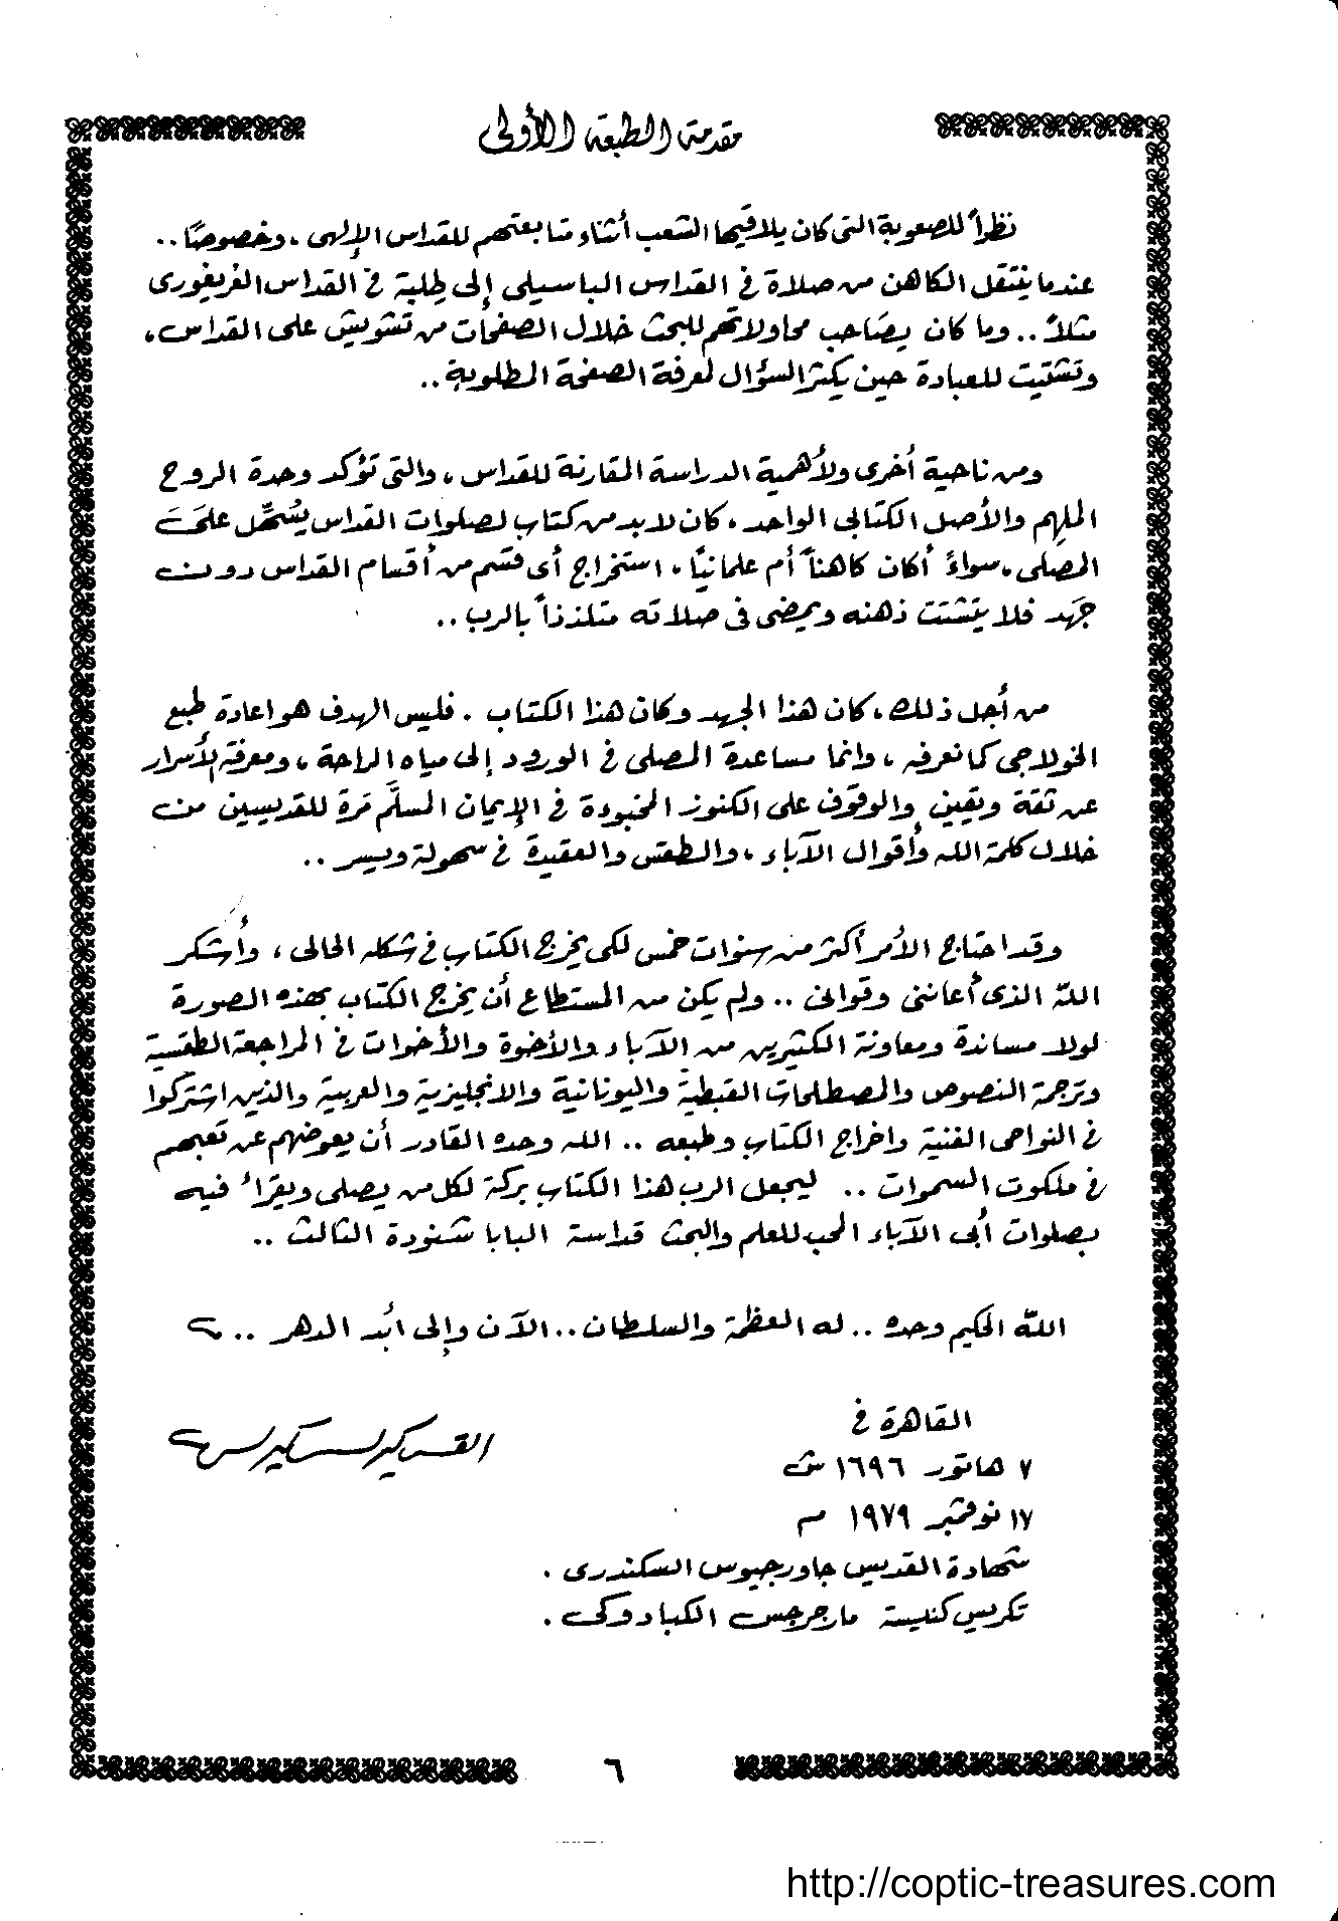 مقدمة الطبعة الأولى
نظراً للصعوبة التى كان يلاقيها الشعب أثناء متابعتهم للقداس الإلهى ، وخصوصًا ..
عندما ينتقل الكاهن من صلاة فى القداس الباسيلى إلى طِلبة فى القداس الغريغورى
مثلاً .. وما كان يصَاحب محاولاتهم للبحث خلال الصفحات من تشويش على القداس ،
وتشتيت للعبادة حين يكثر السؤال لمعرفة الصفحة المطلوبة ..
ومن ناحية أخرى ولأهمية الدراسة المقارنة للقداس ، والتى تؤكد وحدة الروح
الملهِم والأصل الكتابى الواحد ، كان لابد من كتاب لصلوات القداس يُسَهِّل علىَ
المصلى ، سواءً أكان كاهناً أم علمانيًا ، استخراج أى قسم من أقسام القداس دون
جَهد فلا يتشتت ذهنه ويمضى فى صلاته متلذذاً بالرب ..
من أجل ذلك ، كان هذا الجهد وكان هذا الكتاب . فليس الهدف هو اعادة طبع
الخولاجى كما نعرفه ، وانما مساعدة المصلى فى الورود إلى مياه الراحة ، ومعرفة الأسرار
عن ثقة ويقين والوقوف على الكنوز المخبوءة فى الإيمان المسلَّم مَرة للقديسين من
خلال كلمة الله وأقوال الآباء ، والطقس والعقيدة فى سهولة ويسر ..
وقد احتاج الأمر أكثر من سنوات خمس لكى يخرج الكتاب فى شكله الحالى ، وأشكر
اللّه الذى أعاننى وقوانى .. ولم يكن من المستطاع أن يخرج الكتاب بهذه الصورة
لولا مساندة ومعاونة الكثيرين من الآباء والأخوة والأخوات فى المراجعة الطقسية
وترجمة النصوص والمصطلحات القبطية واليونانية والانجليزية والعربية والذين اشتركوا
فى النواحى الفنية واخراج الكتاب وطبعه .. الله وحده القادر أن يعوضهم عن تعبهم
فى ملكوت السموات .. ليجعل الرب هذا الكتاب بركة لكل من يصلى ويقرأ فيه
بصلوات أبى الآباء المحب للعلم والبحث قداسة البابا شنودة الثالث ..
اللّه الحكيم وحده .. له العظمة والسلطان .. الآن وإلى أبد الدهر ..
القس كيرلس كيرلس
القاهرة فى
٧ هاتور ١٦٩٦ ش
١٧ نوفمبر ١٩٧٩ م
شهادة القديس جاورجيوس السكندرى .
تكريس كنيسة مارجرجس الكبادوكى .
٦
http://coptic-treasures.com